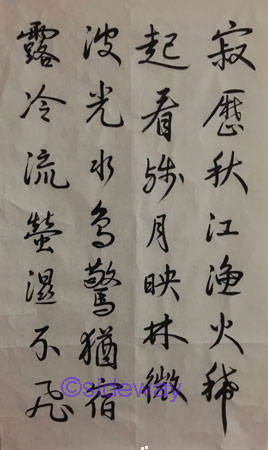 寂歷秋江漁火稀
起看殘月映林微
波光水鳥驚猶宿
露冷流螢濕不飛
©sideway